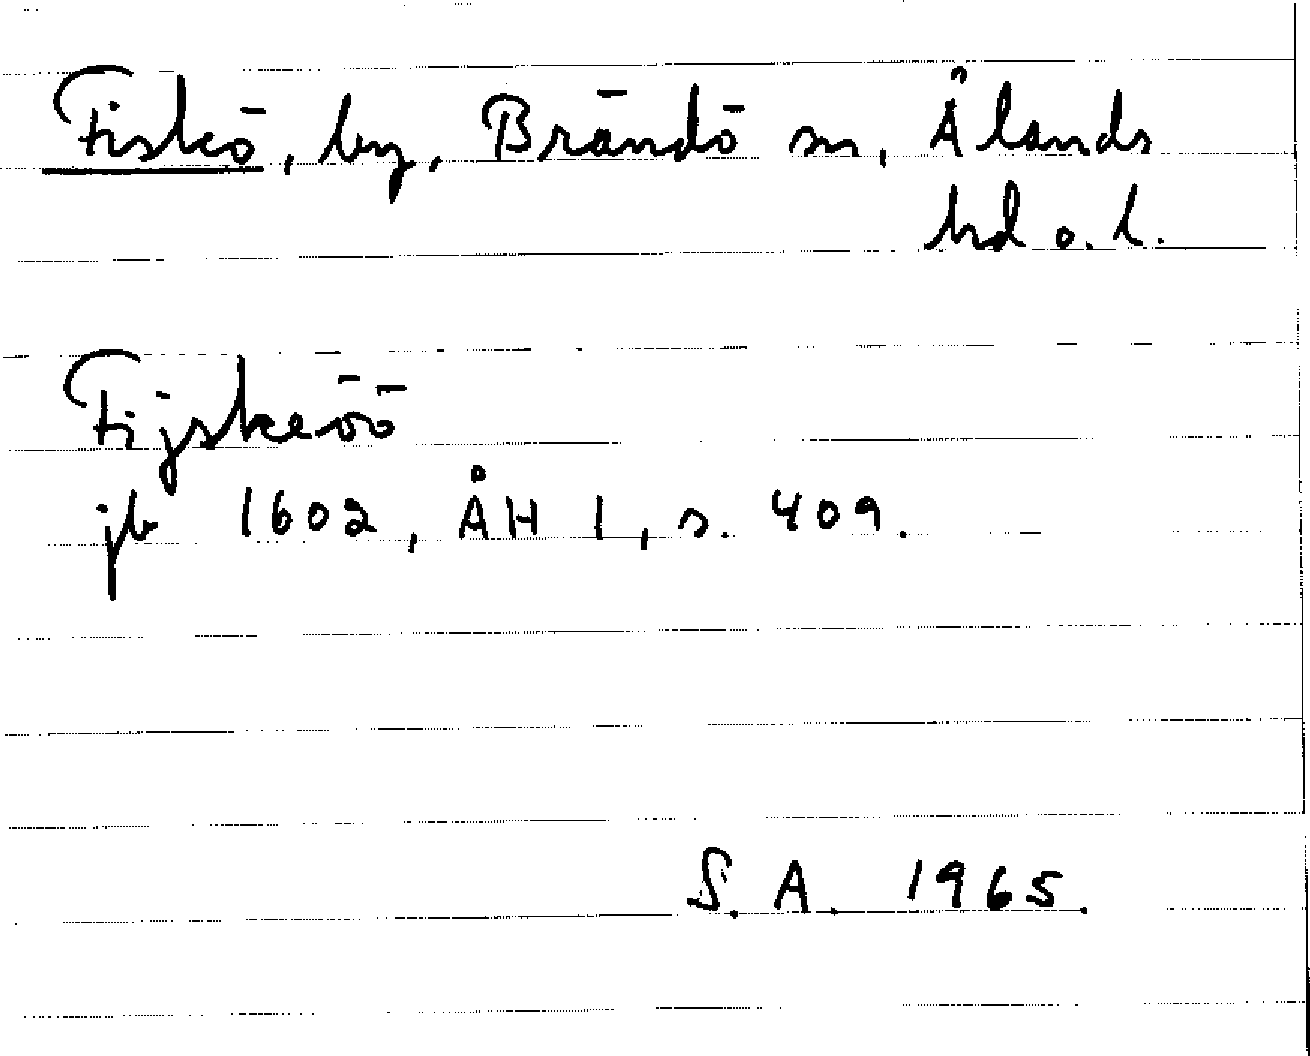 Fiskö, by, Brändö sn, Ålands
hd o. l.
Fijskeöö
jb 1602, ÅH I, s. 409.
S. A. 1965.